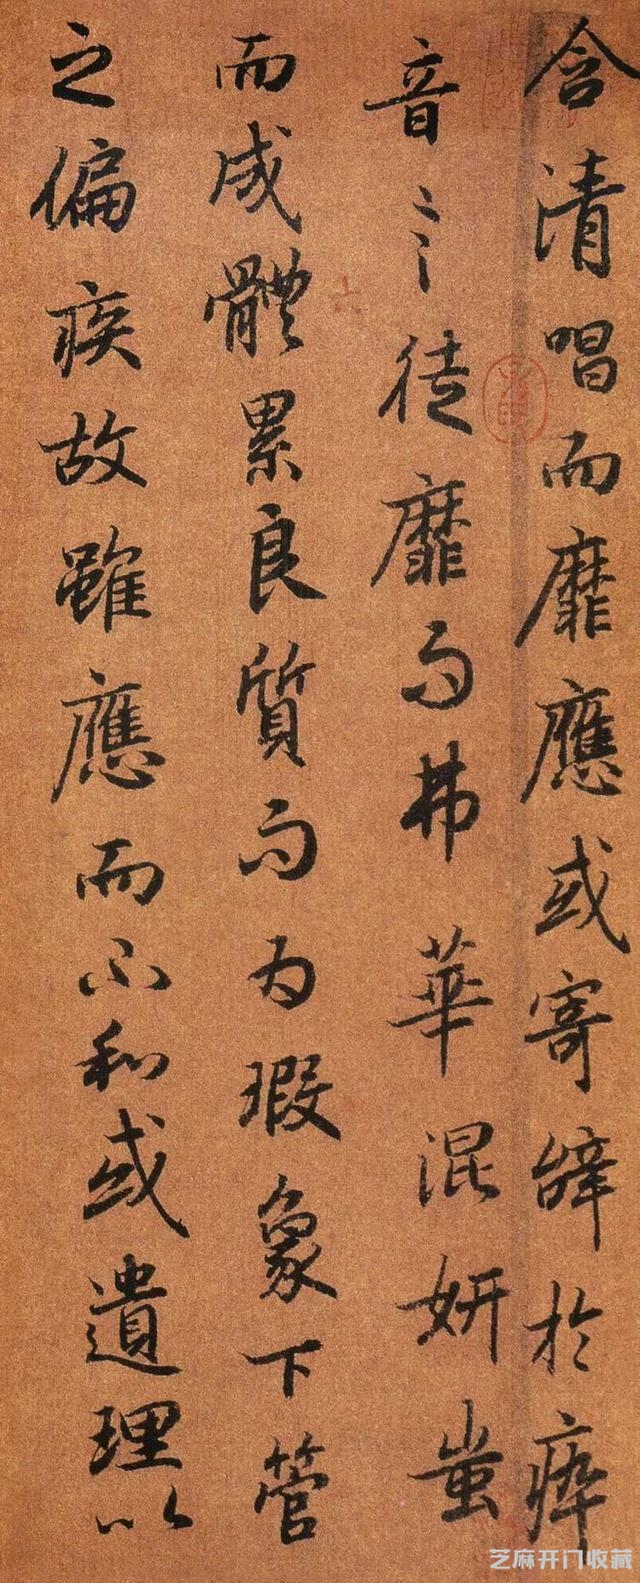 含清唱而靡應或寄辭於瘁
音言徒靡而弗華混妍蚩
而成體累良質而為瑕象下管
之偏疾故雖應而不和或遺理以
六
芝麻开门收藏